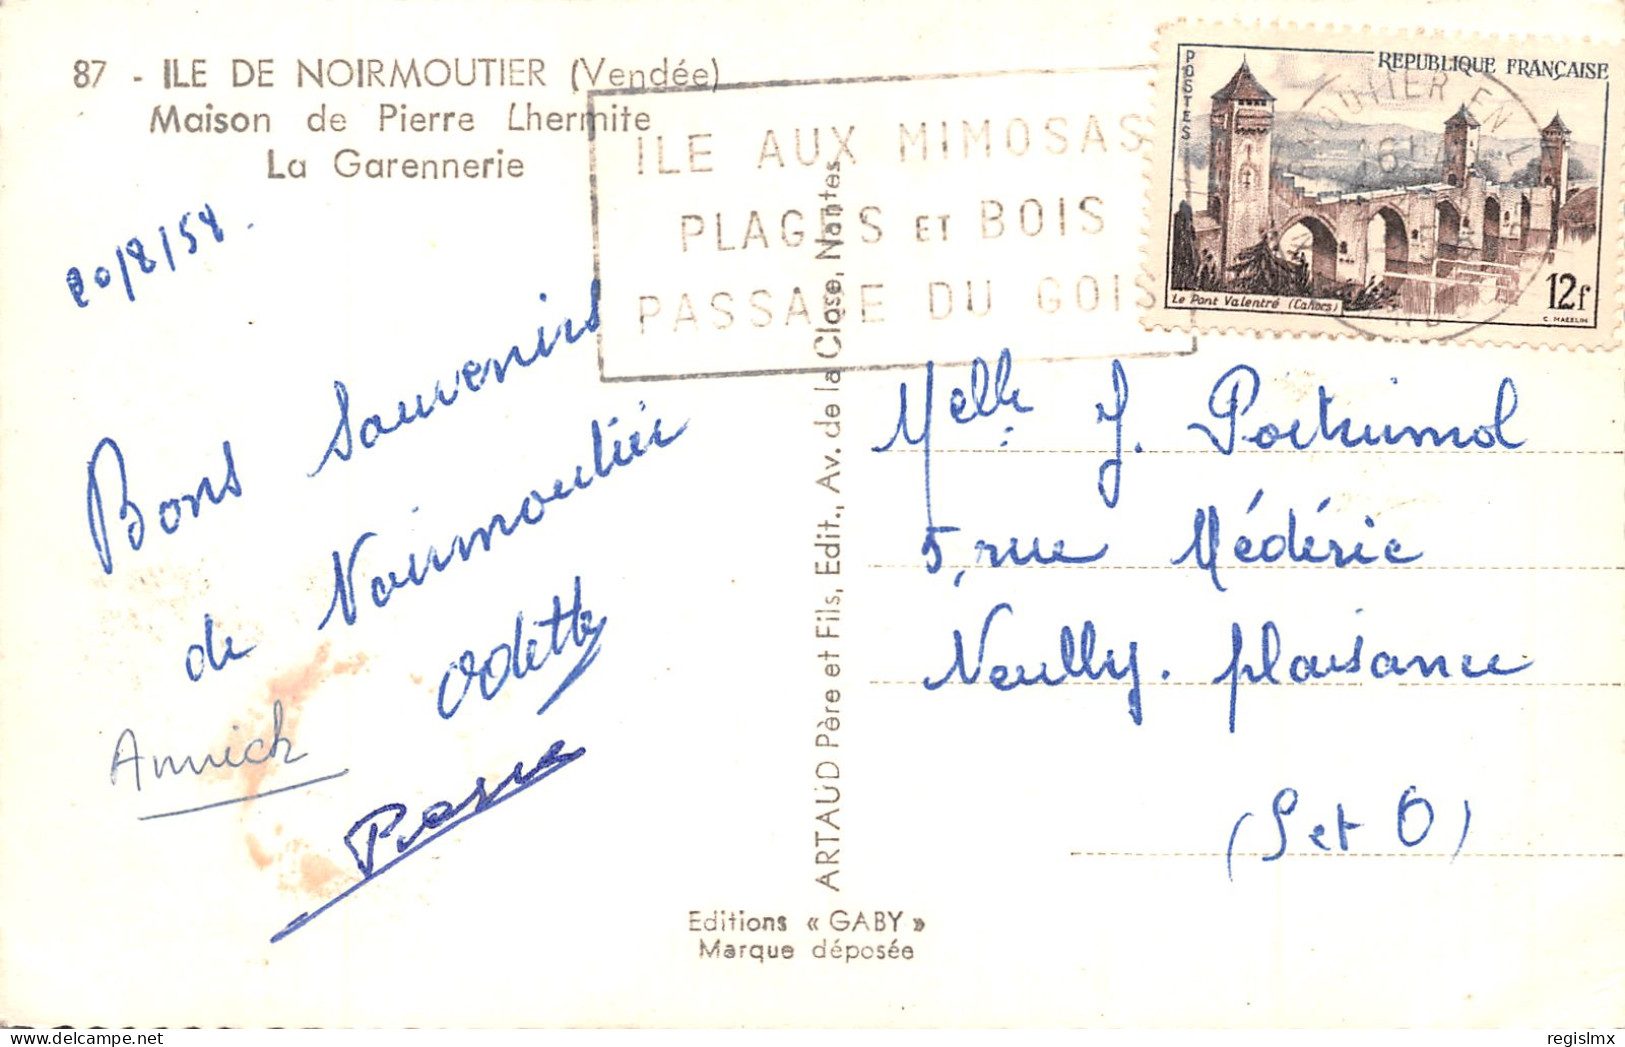 87 - ILE DE NOIRMOUTIER (Vendée)
Maison de Pierre Lhermite
La Garennerie
20/8/58.
Bons Souvenirs
de Noirmoutier
Odette
Annick
Pierre
Editions « GABY »
Marque déposée
ARTAUD Père et Fils, Edit., Av. de la Close, Nantes
ILE AUX MIMOSAS
PLAGES ET BOIS
PASSAGE DU GOIS
POSTES
REPUBLIQUE FRANÇAISE
Le Pont Valentré (Cahors)
12f
C. MAZELIN
Melle J. Portrimol
5, rue Médéric
Neuilly. plaisance
(S et O)
regislmx